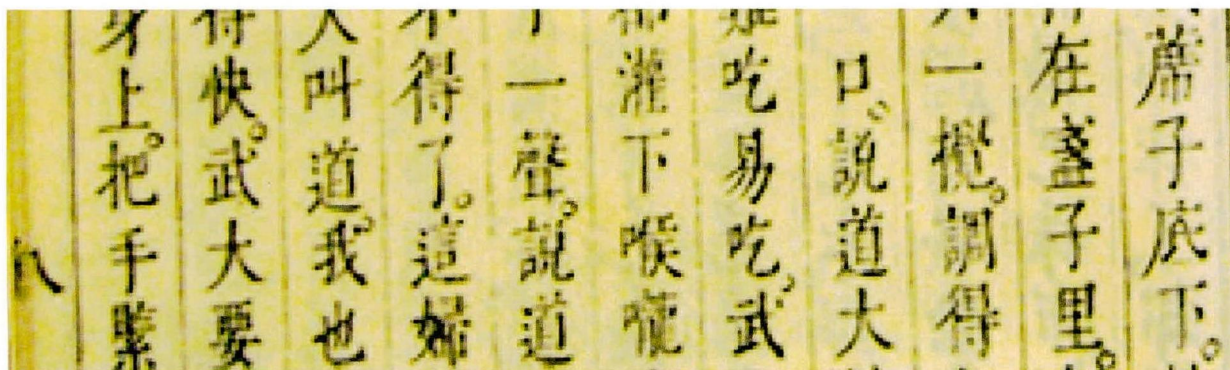 蓆子底下。
在盞子里。
一攪。調得
口。說道大
吃易吃。武
灌下喉嚨
一聲。說道
得了。這婦
人叫道。我也
得快。武大要
身上。把手緊
八